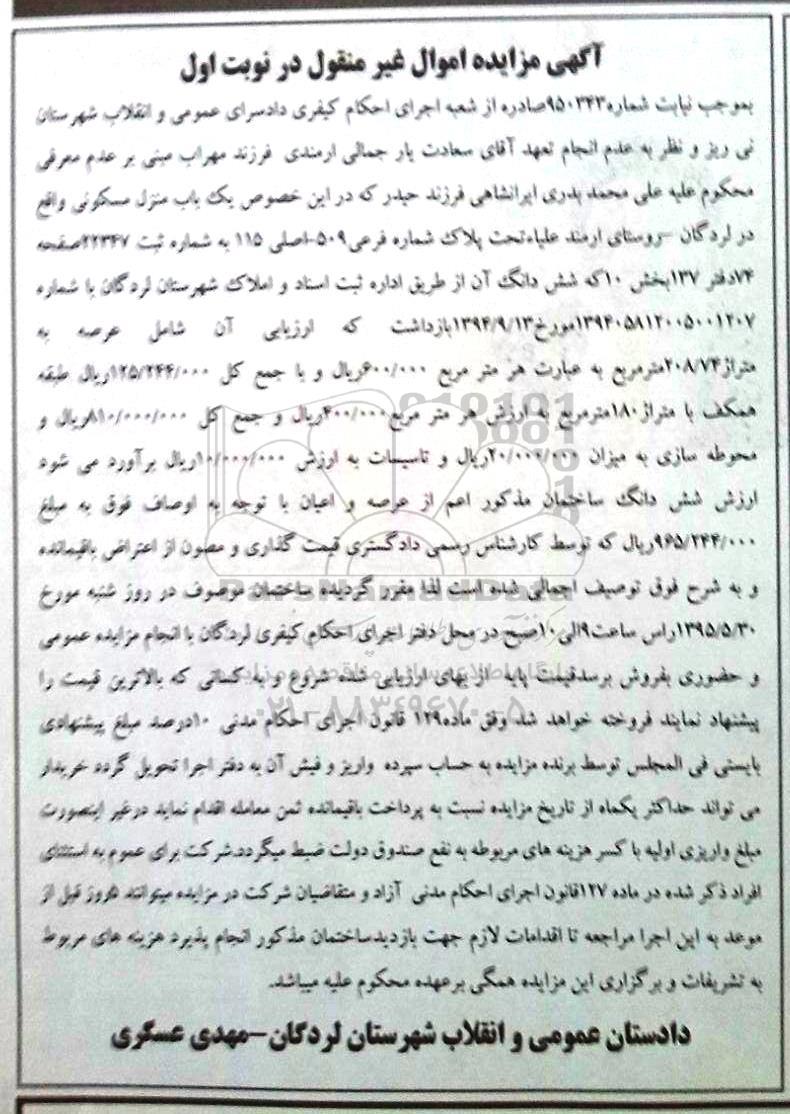 آگهی مزایده اموال غیر منقول در نوبت اول
بموجب نیابت شماره۹۵۰۳۴۳صادره از شعبه اجرای احکام کیفری دادسرای عمومی و انقلاب شهرستان
نی ریز و نظر به عدم انجام تعهد آقای سعادت یار جمالی ارمندی فرزند مهراب مبنی بر عدم معرفی
محکوم علیه علی محمد بدری ایرانشاهی فرزند حیدر که در این خصوص یک باب منزل مسکونی واقع
در لردگان –روستای ارمند علیاءتحت پلاک شماره فرعی۵۰۹-اصلی ۱۱۵ به شماره ثبت ۲۲۳۴۷صفحه
۷۴دفتر ۱۳۷بخش ۱۰که شش دانگ آن از طریق اداره ثبت اسناد و املاک شهرستان لردگان با شماره
۱۳۹۴۰۵۸۱۲۰۰۵۰۰۱۲۰۷مورخ۱۳۹۴/۹/۱۳بازداشت که ارزیابی آن شامل عرصه به
متراژ۲۰۸/۷۴مترمربع به عبارت هر متر مربع ۶۰۰/۰۰۰ریال و با جمع کل ۱۲۵/۲۴۴/۰۰۰ریال طبقه
همکف با متراژ۱۸۰مترمربع به ارزش هر متر مربع ریال و جمع کل ۸۱۰/۰۰۰/۰۰۰ریال و
محوطه سازی به میزان ۲۰/۰۰۰/۰۰۰ریال و تاسیسات به ارزش ۱۰/۰۰۰/۰۰۰ریال برآورد می شود
ارزش شش دانگ ساختمان مذکور اعم از عرصه و اعیان با توجه به اوصاف فوق به مبلغ
۹۶۵/۲۴۴/۰۰۰ریال که توسط کارشناس رسمی دادگستری قیمت گذاری و مصون از اعتراض باقیمانده
و به شرح فوق توصیف اجمالی شده است لذا مقرر گردیده ساختمان موصوف در روز شنبه مورخ
۱۳۹۵/۵/۳۰راس ساعت۹الی۱۰صبح در محل دفتر اجرای احکام کیفری لردگان با انجام مزایده عمومی
و حضوری بفروش برسدقیمت پایه از بهای ارزیابی شده شروع و به کسانی که بالاترین قیمت را
پیشنهاد نمایند فروخته خواهد شد وفق ماده۱۲۹ قانون اجرای احکام مدنی ۱۰درصد مبلغ پیشنهادی
بایستی فی المجلس توسط برنده مزایده به حساب سپرده واریز و فیش آن به دفتر اجرا تحویل گردد خریدار
می تواند حداکثر یکماه از تاریخ مزایده نسبت به پرداخت باقیمانده ثمن معامله اقدام نماید درغیر اینصورت
مبلغ واریزی اولیه با کسر هزینه های مربوطه به نفع صندوق دولت ضبط میگردد.شرکت برای عموم به استثنای
افراد ذکر شده در ماده ۱۲۷قانون اجرای احکام مدنی آزاد و متقاضیان شرکت در مزایده میتوانند ۵روز قبل از
موعد به این اجرا مراجعه تا اقدامات لازم جهت بازدیدساختمان مذکور انجام پذیرد هزینه های مربوط
به تشریفات و برگزاری این مزایده همگی برعهده محکوم علیه میباشد.
دادستان عمومی و انقلاب شهرستان لردگان–مهدی عسگری
ParsNamadData
۰۲۱-۸۸۳۴۹۶۷۰-۵